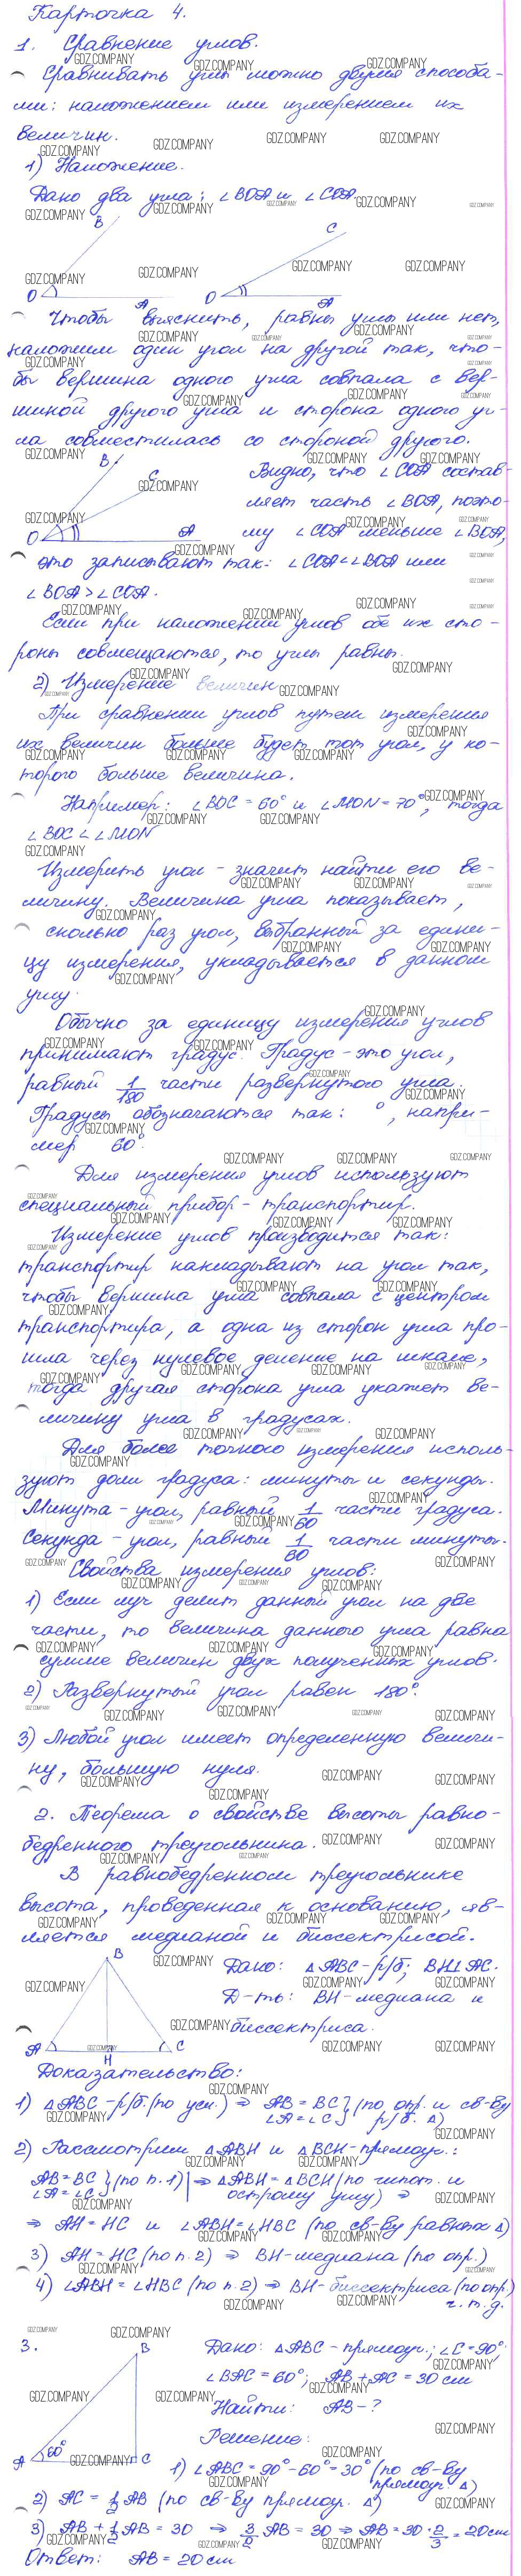 Карточка 4.
1. Сравнение углов.
Сравнивать углы можно двумя способа-
ми: наложением или измерением их
величин.
1) Наложение.
Дано два угла: ∠BOA и ∠COA.
B
C
O
A
O
A
Чтобы выяснить, равны углы или нет,
наложим один угол на другой так, что-
бы вершина одного угла совпала с вер-
шиной другого угла и сторона одного уг-
ла совместилась со стороной другого.
B
C
O
A
Видно, что ∠COA состав-
ляет часть ∠BOA, поэто-
му ∠COA меньше ∠BOA,
это записывают так: ∠COA < ∠BOA или
∠BOA > ∠COA.
Если при наложении углов обе их сто-
роны совмещаются, то углы равны.
2) Измерение величин
При сравнении углов путем измерения
их величин больше будет тот угол, у ко-
торого больше величина.
Например: ∠BOC = 60° и ∠MON = 70°, тогда
∠BOC < ∠MON
Измерить угол - значит найти его ве-
личину. Величина угла показывает,
сколько раз угол, выбранный за едини-
цу измерения, укладывается в данном
углу.
Обычно за единицу измерения углов
принимают градус. Градус - это угол,
равный 1/180 части развернутого угла.
Градусы обозначаются так: °, напри-
мер 60°.
Для измерения углов используют
специальный прибор - транспортир.
Измерение углов производится так:
транспортир накладывают на угол так,
чтобы вершина угла совпала с центром
транспортира, а одна из сторон угла про-
шла через нулевое деление на шкале,
тогда другая сторона угла укажет ве-
личину угла в градусах.
Для более точного измерения исполь-
зуют доли градуса: минуты и секунды.
Минута - угол, равный 1/60 части градуса.
Секунда - угол, равный 1/60 части минуты.
Свойства измерения углов:
1) Если луч делит данный угол на две
части, то величина данного угла равна
сумме величин двух полученных углов.
2) Развернутый угол равен 180°.
3) Любой угол имеет определенную величи-
ну, большую нуля.
2. Теорема о свойстве высоты равно-
бедренного треугольника.
В равнобедренном треугольнике
высота, проведенная к основанию, яв-
ляется медианой и биссектрисой.
B
A
H
C
Дано: △ABC - р/б; BH⊥AC.
Д-ть: BH - медиана и
биссектриса.
Доказательство:
1) △ABC - р/б (по усл.) ⇒ AB = BC } (по опр. и св-ву
∠A = ∠C } р/б. △)
2) Рассмотрим △ABH и △BCH - прямоуг.:
AB = BC } (по п. 1) | ⇒ △ABH = △BCH (по гипот. и
∠A = ∠C } острому углу) ⇒
⇒ AH = HC и ∠ABH = ∠HBC (по св-ву равных △)
3) AH = HC (по п. 2) ⇒ BH - медиана (по опр.)
4) ∠ABH = ∠HBC (по п. 2) ⇒ BH - биссектриса (по опр.)
ч.т.д.
3.
B
A
60°
C
Дано: △ABC - прямоуг.; ∠C = 90°
∠BAC = 60°; AB + AC = 30 см
Найти: AB - ?
Решение:
1) ∠ABC = 90° - 60° = 30° (по св-ву
прямоуг. △)
2) AC = 1/2 AB (по св-ву прямоуг. △)
3) AB + 1/2 AB = 30 ⇒ 3/2 AB = 30 ⇒ AB = 30 · 2/3 = 20 см
Ответ: AB = 20 см
GDZ.COMPANY